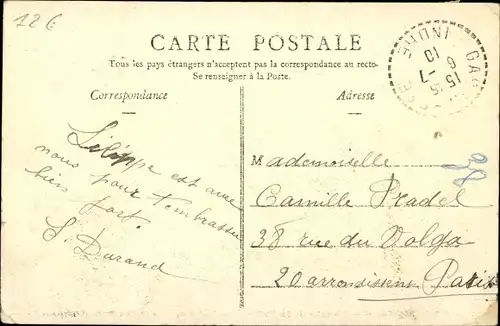 12€
CARTE POSTALE
Tous les pays étrangers n'acceptent pas la correspondance au recto-
Se renseigner à la Poste.
Correspondance
Adresse
15-7
10
INDRE
est avec
nous pour t'embrasser
bien fort.
S. Durand
Mademoiselle
Camille Pladel
38 rue du Volga
20 arrondissent Paris